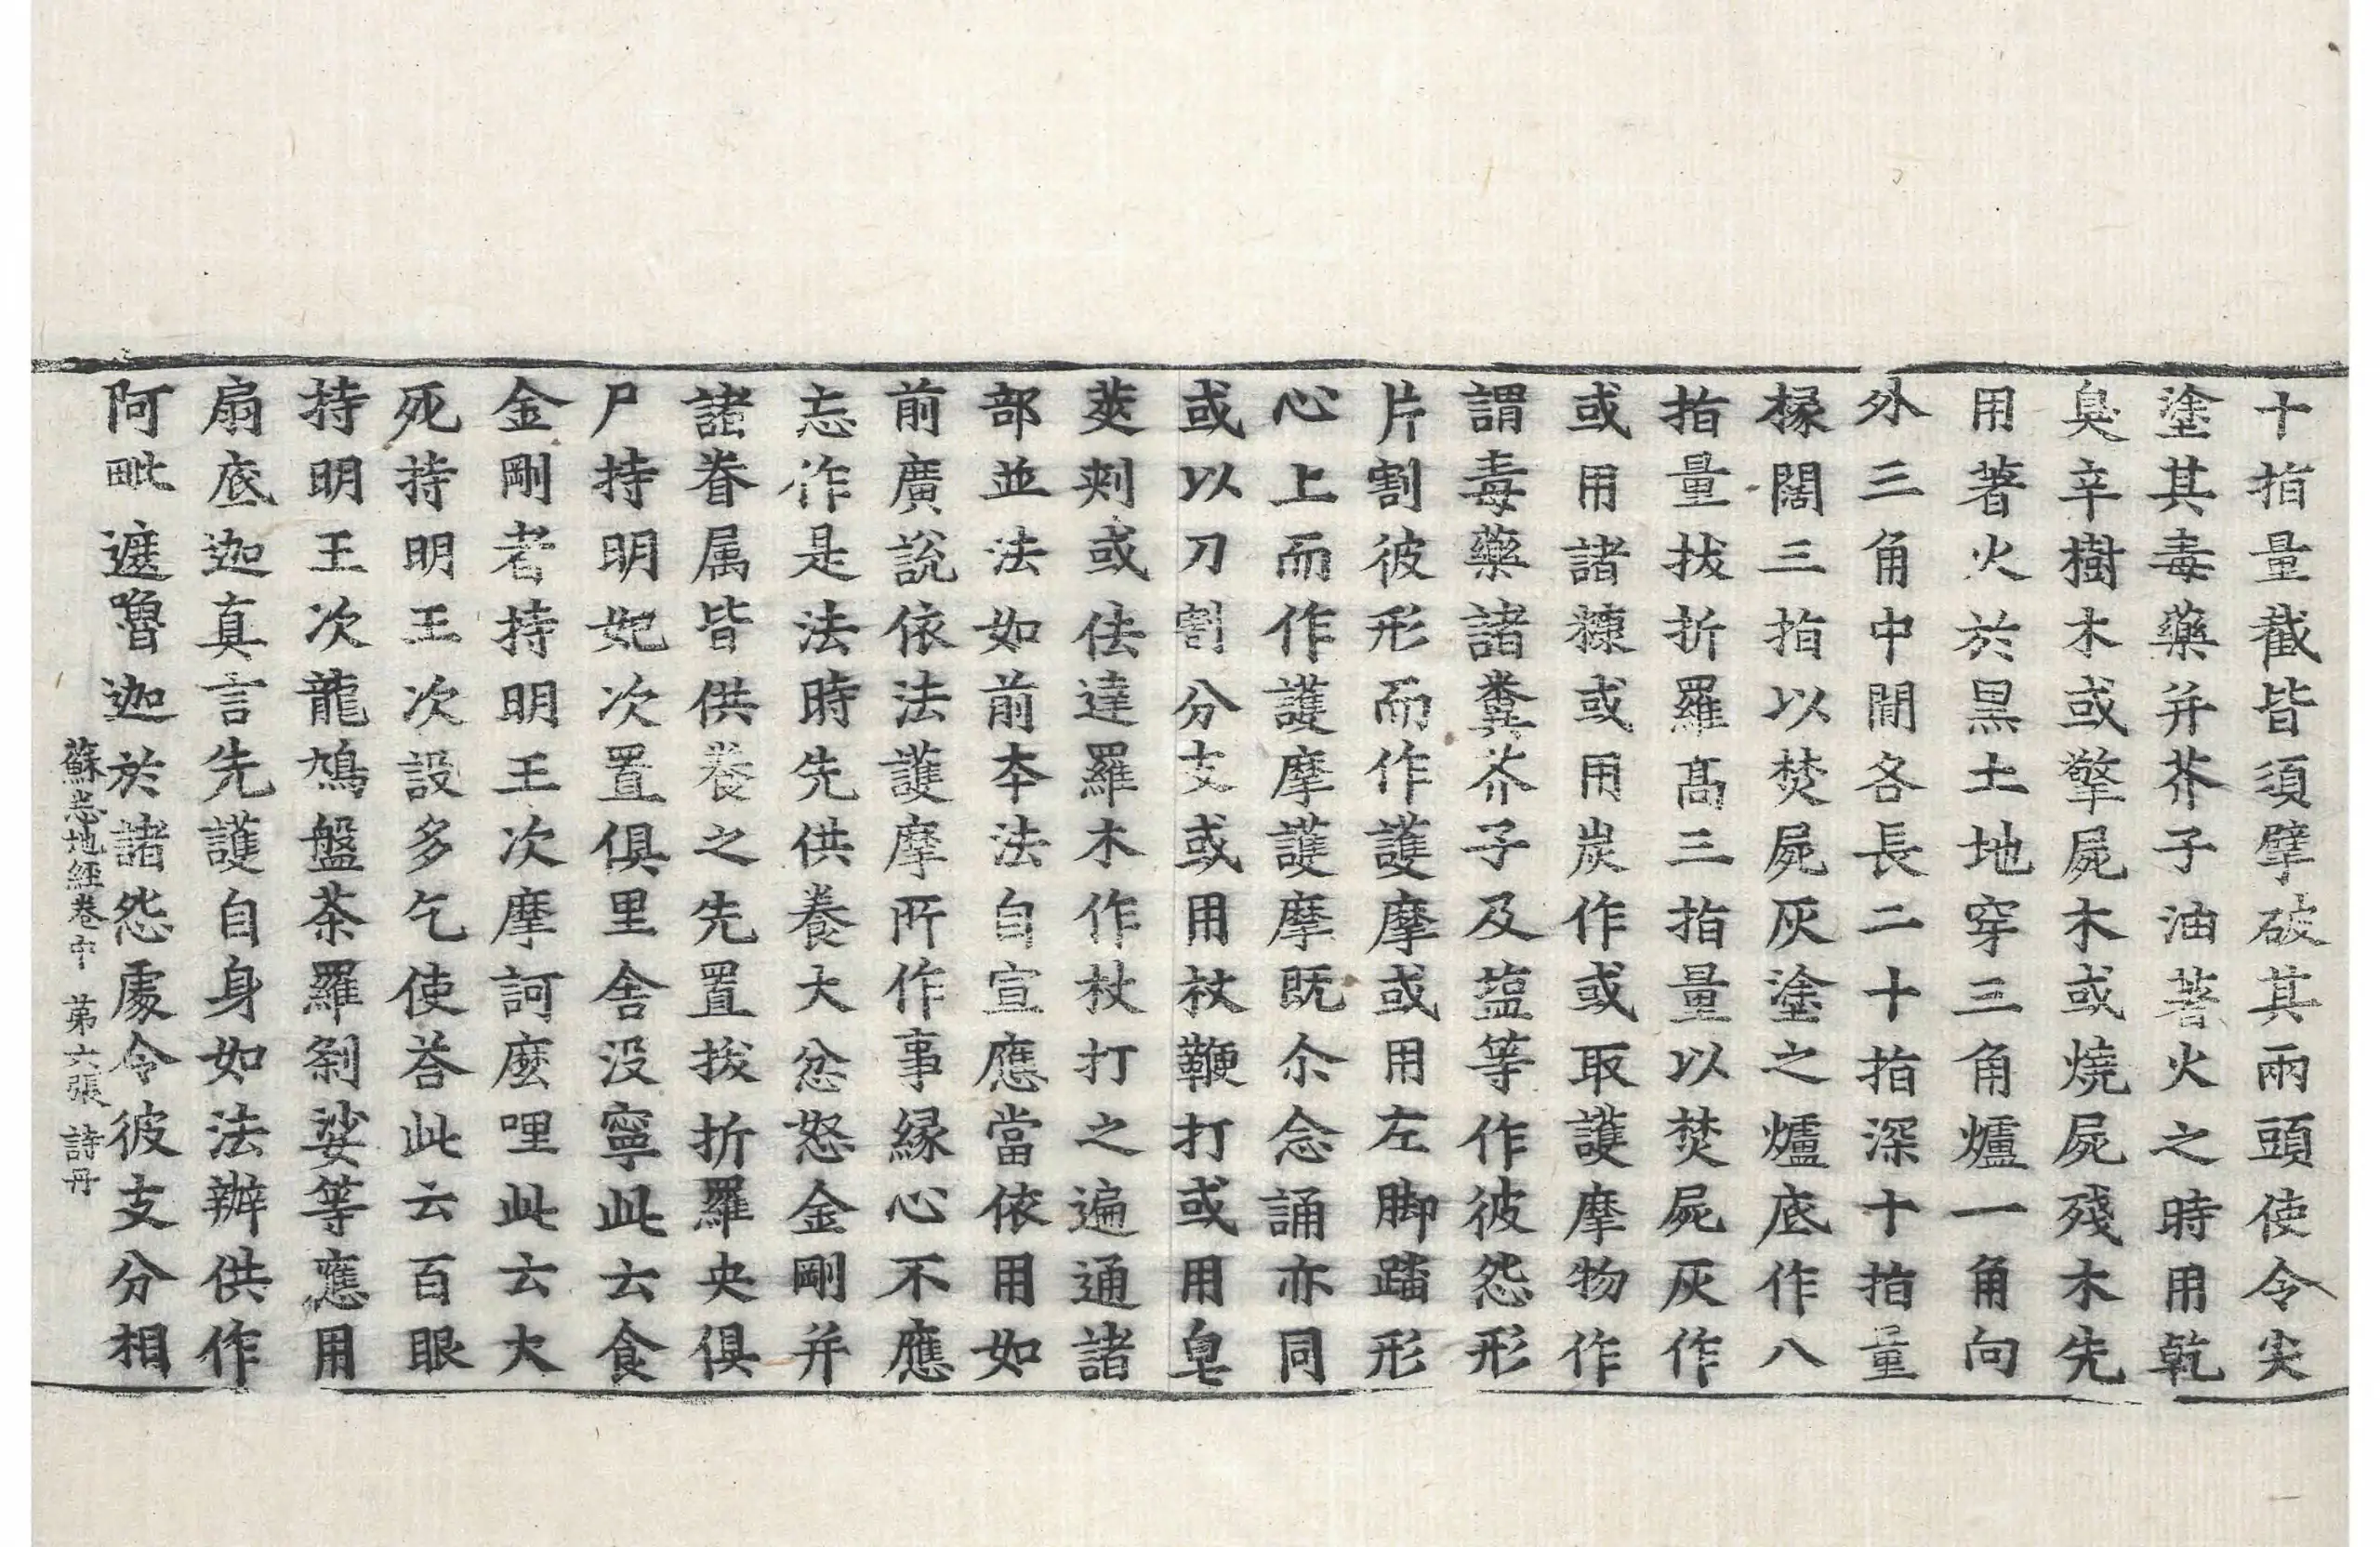 十指量截皆須擘破其兩頭使令尖
塗其毒藥并芥子油著火之時用乾
臭辛樹木或擎屍木或燒屍殘木先
用著火於黑土地穿三角爐一角向
外三角中間各長二十指深十指量
椽闊三指以焚屍灰塗之爐底作八
指量拔折羅高三指量以焚屍灰作
或用諸糠或用炭作或取護摩物作
謂毒藥諸糞芥子及塩等作彼怨形
片割彼形而作護摩或用左脚踏形
心上而作護摩護摩既尒念誦亦同
或以刀割分支或用杖鞭打或用皂
莢刾或佉達羅木作杖打之遍通諸
部並法如前夲法自宣應當依用如
前廣說依法護摩所作事緣心不應
忘作是法時先供養大忿怒金剛并
諸眷属皆供養之先置拔折羅央俱
尸持明妃次置俱里舍没寧此云食
金剛者持明王次摩訶麼哩此云大
死持明王次設多乞使荅此云百眼
持明王次龍鳩盤荼羅剎娑等應用
扇底迦真言先護自身如法辦供作
阿毗遮嚕迦於諸怨處令彼支分相
蘇悉地經卷中 苐六張 詩丹